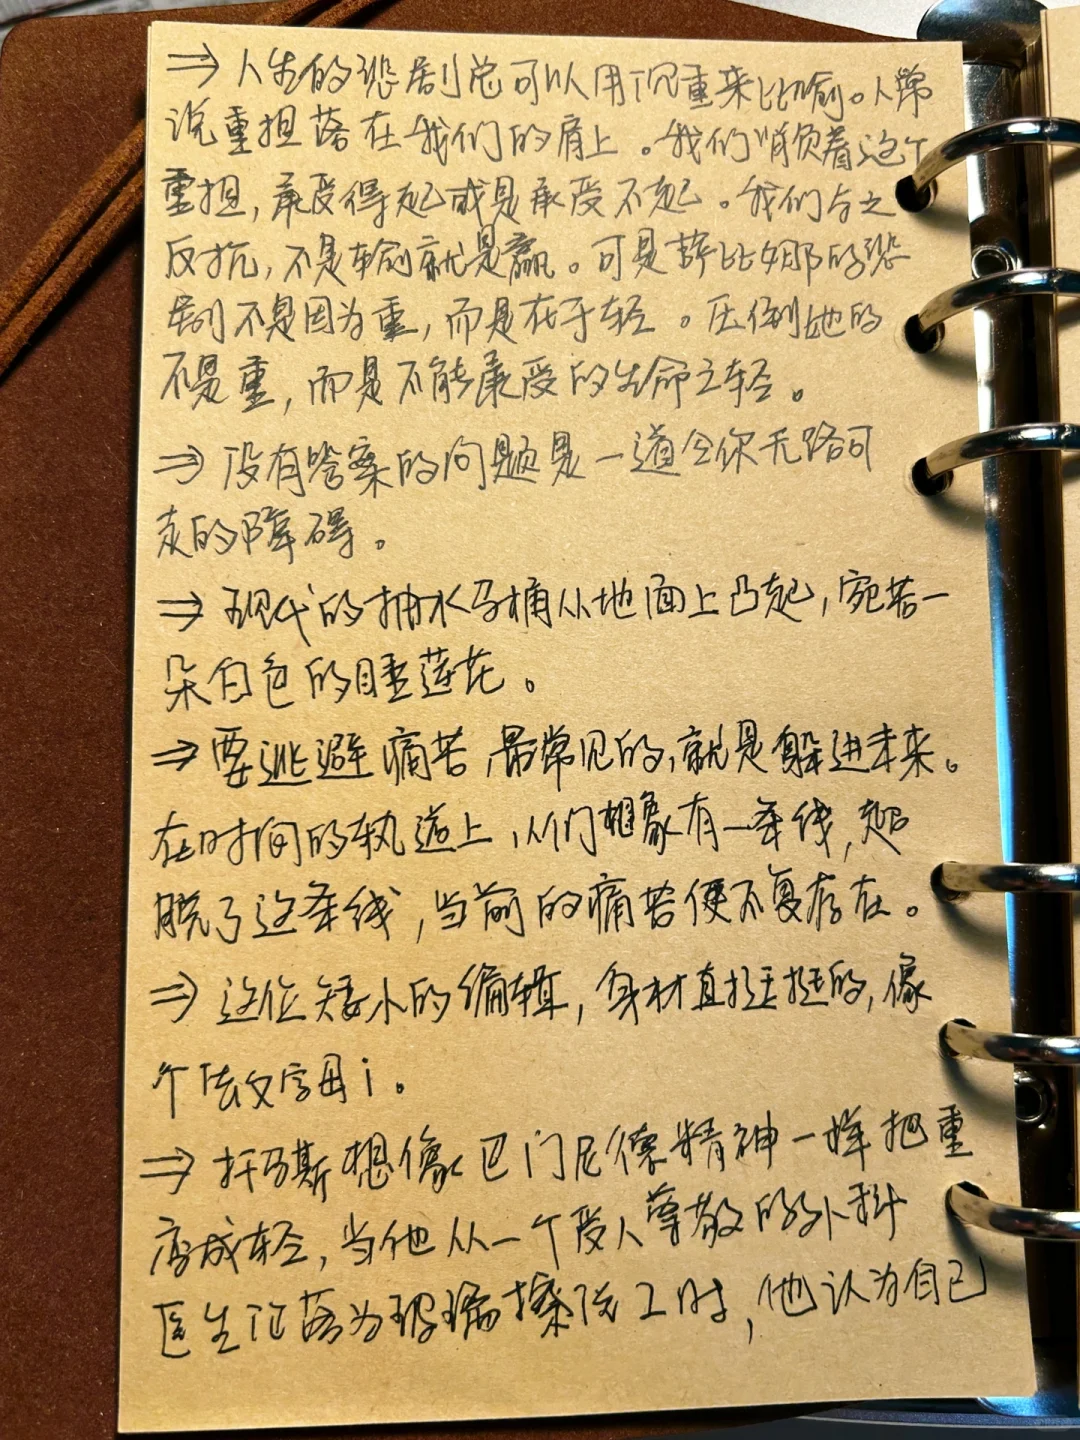 ⇒ 人生的悲剧总可以用沉重来比喻。人常
说重担落在我们的肩上。我们背负着这个
重担，承受得起或是承受不起。我们与之
反抗，不是输就是赢。可是萨比娜的悲
剧不是因为重，而是在于轻。压倒她的
不是重，而是不能承受的生命之轻。
⇒ 没有答案的问题是一道令你无路可
走的障碍。
⇒ 现代的抽水马桶从地面上凸起，宛若一
朵白色的睡莲花。
⇒ 要逃避痛苦，最常见的，就是躲进未来。
在时间的轨道上，人们想象有一条线，超
脱了这条线，当前的痛苦便不复存在。
⇒ 这位矮小的编辑，身材直挺挺的，像
个法文字母i。
⇒ 托马斯想像巴门尼德精神一样把重
变成轻，当他从一个受人尊敬的外科
医生沦落为玻璃擦洗工时，他认为自己